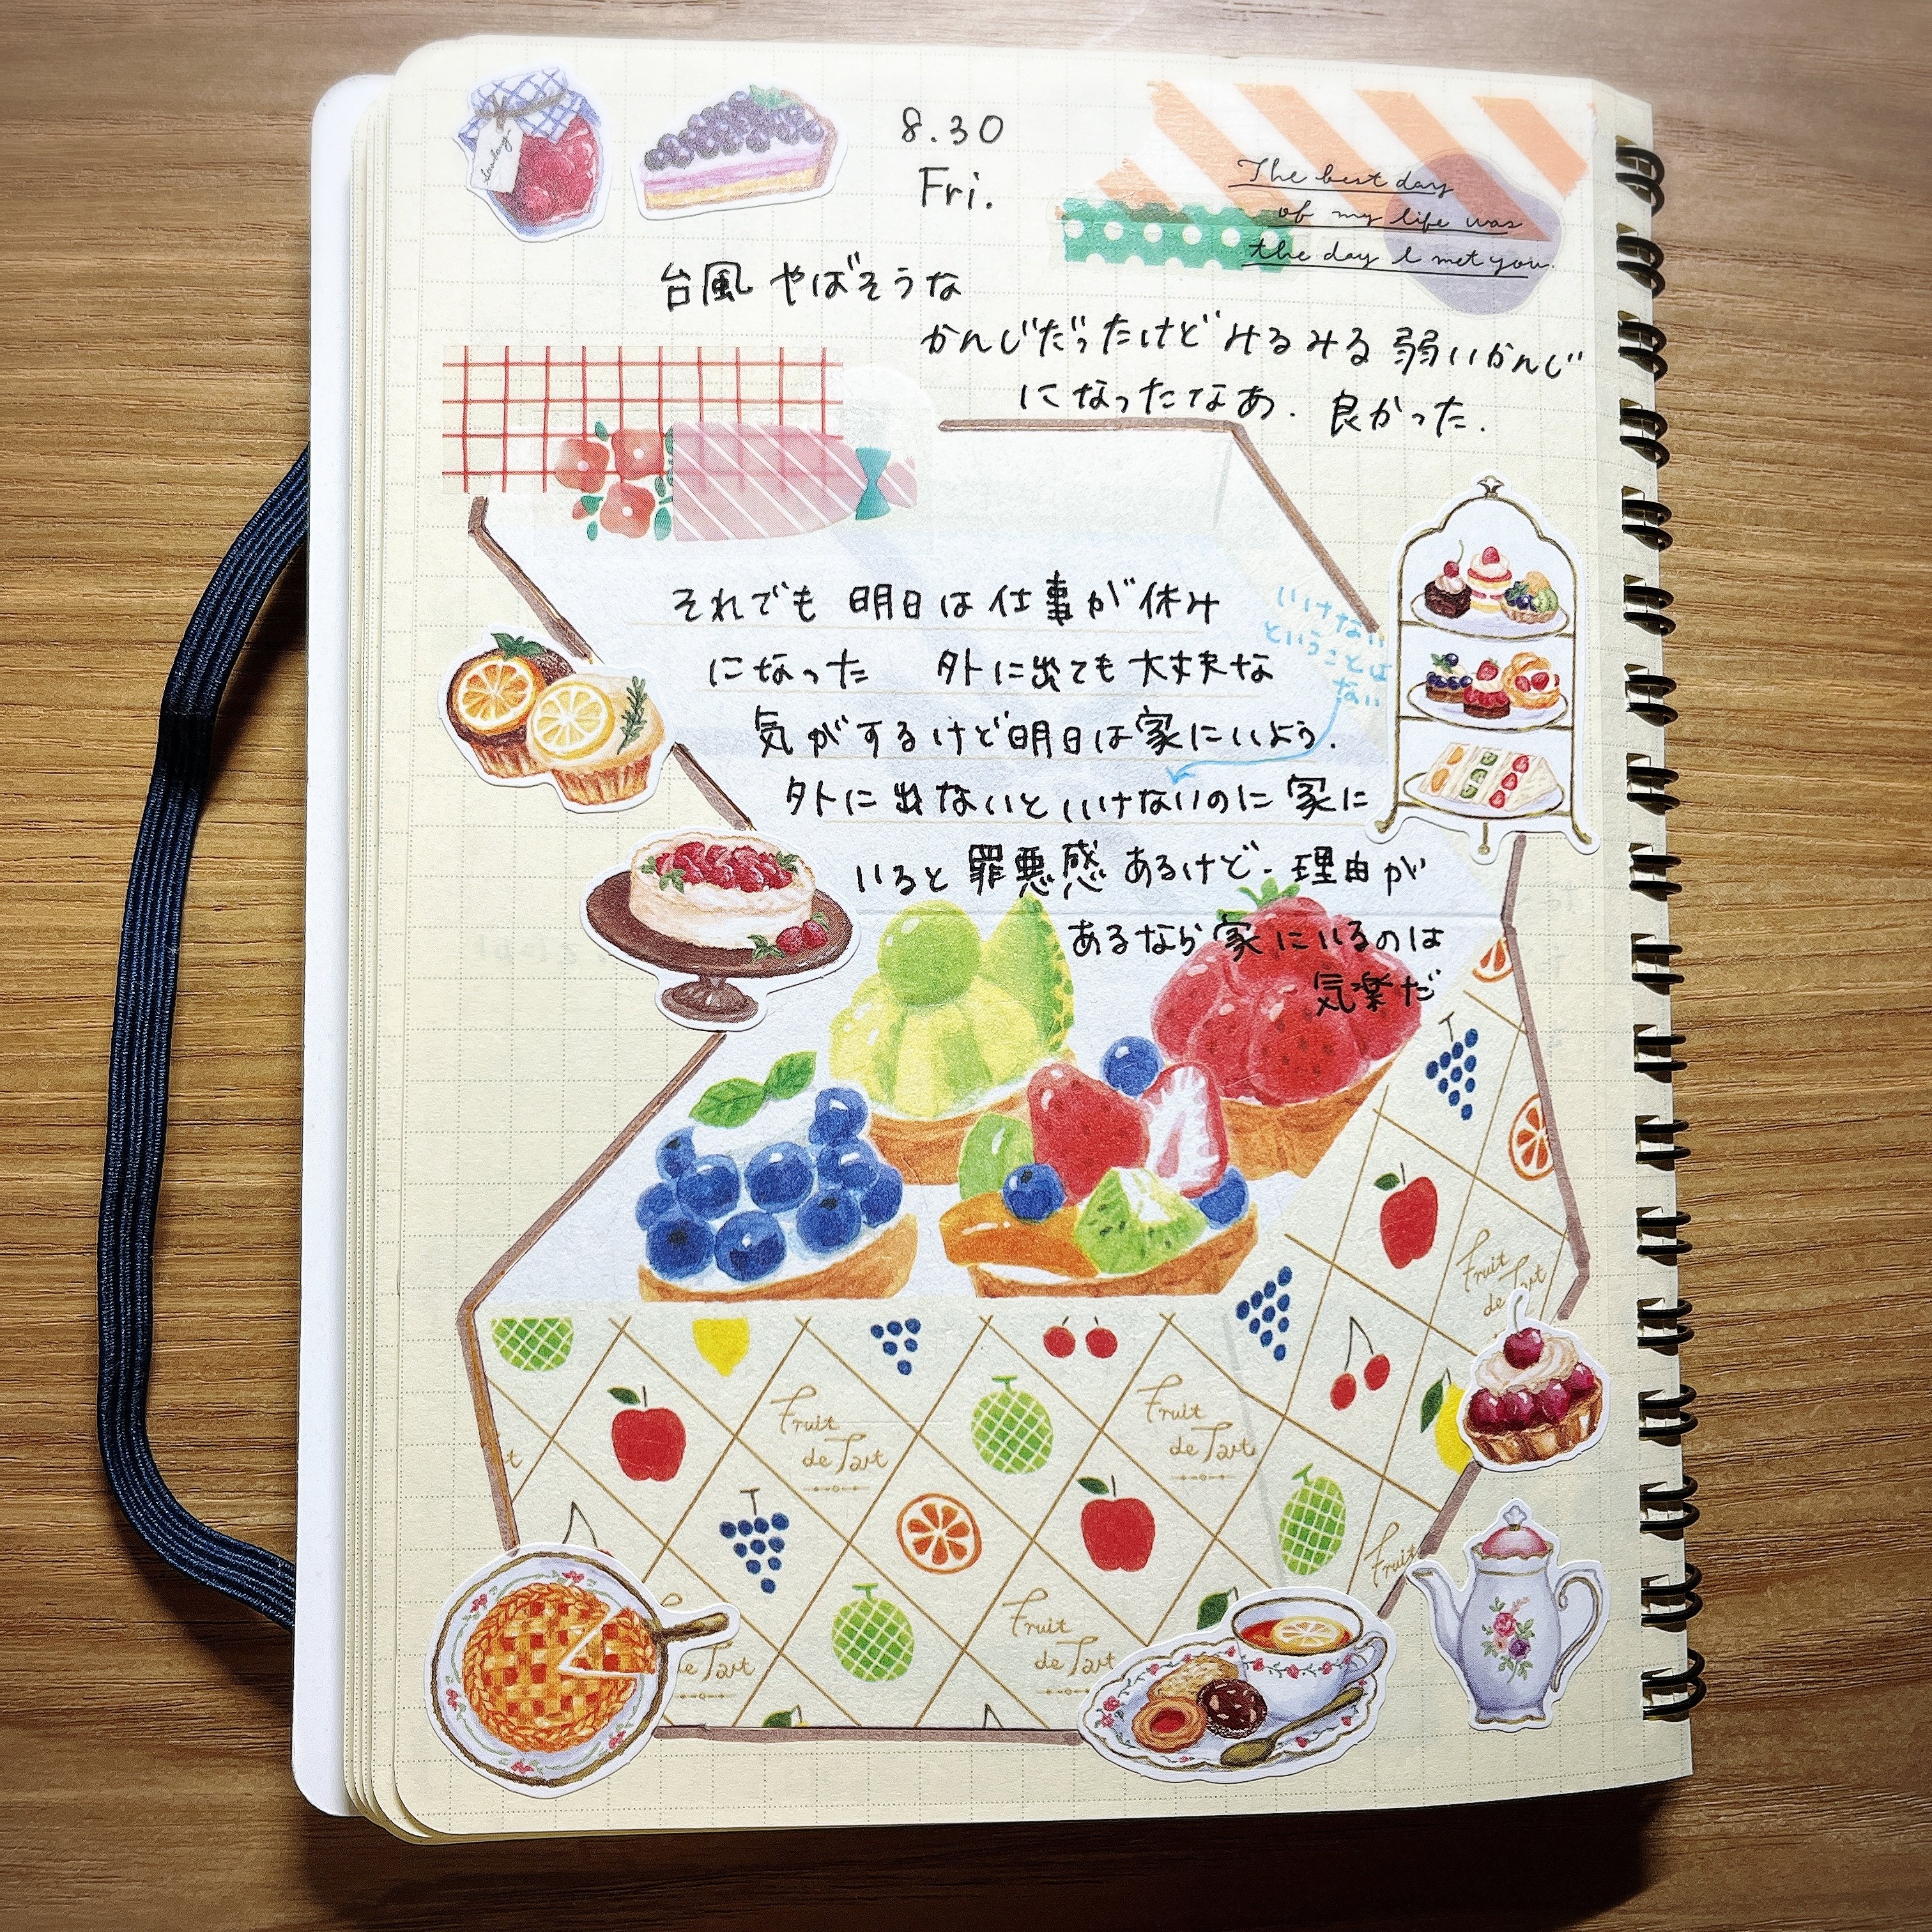 8.30
Fri.
The best day
of my life was
the day I met you.
台風 やばそうな
かんじだったけど みるみる 弱いかんじ
になったなあ. 良かった.
それでも 明日は仕事が休み
になった 外に出ても大丈夫な
気がするけど明日は家にいよう.
いけない
ということは
ない
外に出ないといけないのに家に
いると罪悪感あるけど. 理由が
あるなら家にいるのは
気楽だ
Fruit
de Tart
Fruit
de Tart
Fruit
de Tart
Fruit
de Tart
de Tart
Fruit